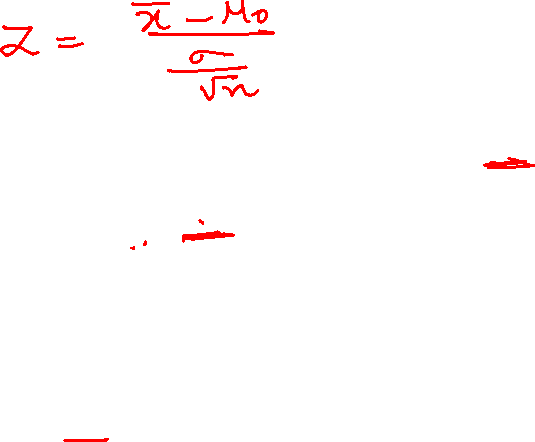 Z = (x̄ - μ₀) / (σ / √n)